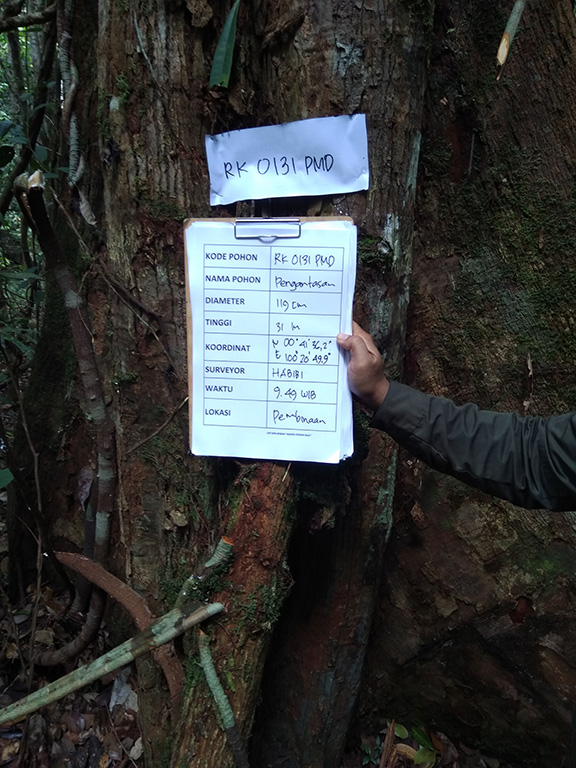 RK 0131 PMD
KODE POHON RK 0131 PMD
NAMA POHON Pengantasan
DIAMETER 119 cm
TINGGI 31 M
KOORDINAT N 00° 41' 36,2"
E 100° 20' 49.9"
SURVEYOR HABIBI
WAKTU 9.49 WIB
LOKASI Pembinaan